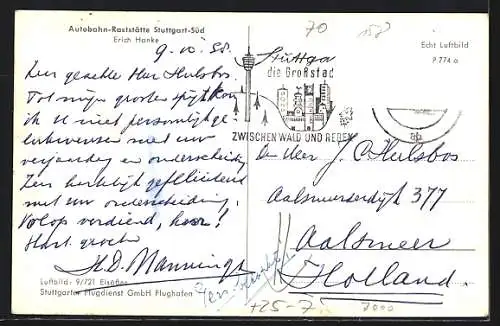 Autobahn-Raststätte Stuttgart-Süd
Erich Hanke
9-10-58.
Zeer geachte Heer Hulsbos.
Tot mijn grooten spijt kon
ik U niet persoonlijk ge-
lukwenschen met uw
verjaardag en onderscheiding
Zeer hartelijk gefeliciteerd
met uw onderscheiding.
Volop verdiend, hoor!
Hart. groeten
H.D. Manning
Luftbild: 9/721 Elsäßer
Stuttgarter Flugdienst GmbH Flughafen
70
Stuttga
die Großstad
ZWISCHEN WALD UND REBEN
Echt Luftbild
P 774 a
Den Heer J. C Hulsbos
Aalsmeerderdijk 377
Aalsmeer
Holland.
+25-7
7000